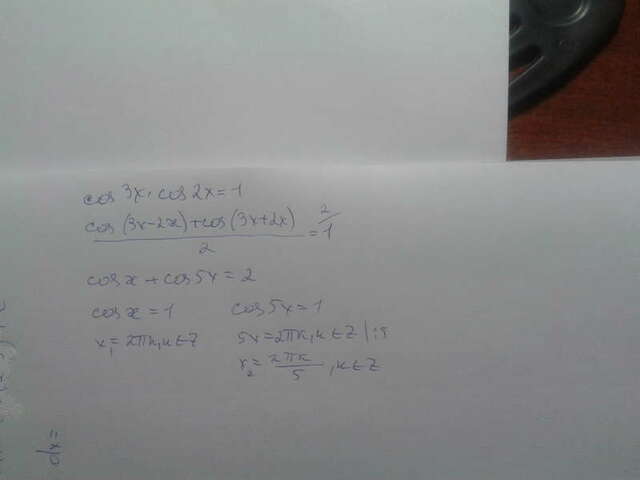 cos 3x · cos 2x = 1
cos (3x-2x) + cos (3x+2x) / 2 = 2/ 1
cos x + cos 5x = 2
cos x = 1 cos 5x = 1
x₁ = 2πk, k ∈ Z 5x = 2πk, k ∈ Z | :5
x₂ = 2πk / 5 , k ∈ Z